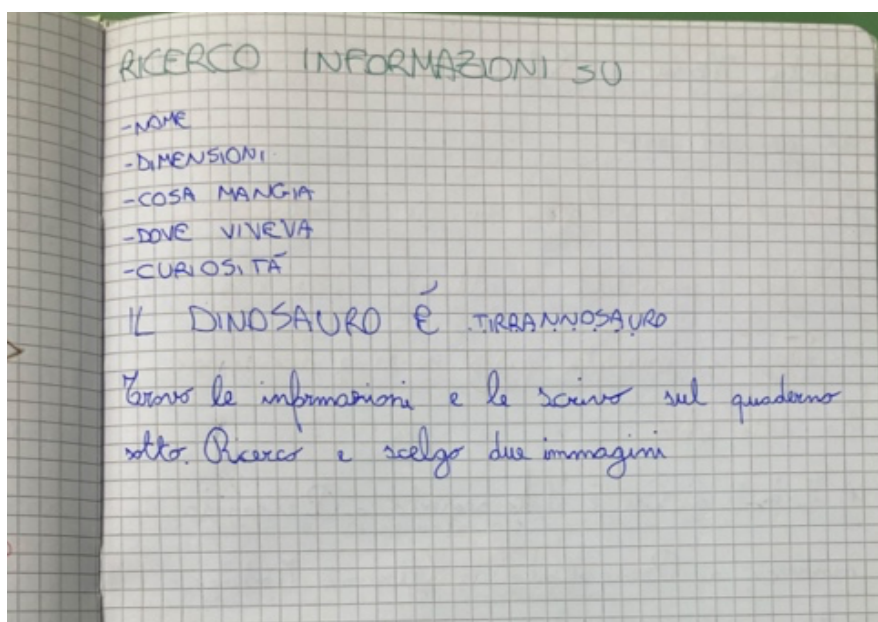 RICERCO INFORMAZIONI SU
-NOME
-DIMENSIONI
-COSA MANGIA
-DOVE VIVEVA
-CURIOSITÁ
IL DINOSAURO É TIRRANNOSAURO
Trovo le informazioni e le scrivo sul quaderno
sotto. Ricerco e scelgo due immagini